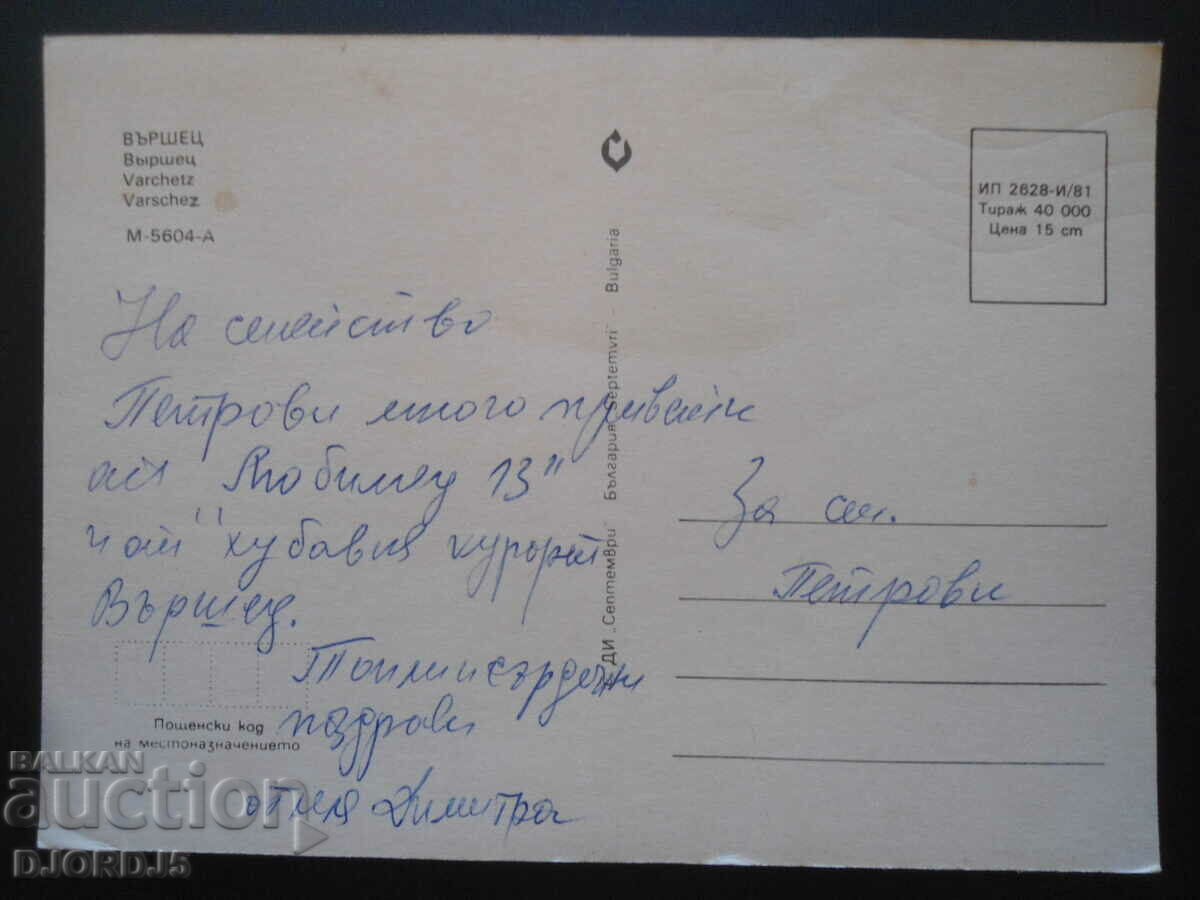 ВЪРШЕЦ
Выршец
Varchetz
Varschez
М-5604-А
ИП 2628-И/81
Тираж 40 000
Цена 15 cm
ДИ „Септември" България „Septemvri" - Bulgaria
На семейство
Петрови много
"Любимец 13"
хубавия курорт
Вършец.
Топли и сърдечни
поздрави
от леля Димитра
За сем.
Петрови
Пощенски код
на местоназначението
BALKAN
auction
DJORDJ5